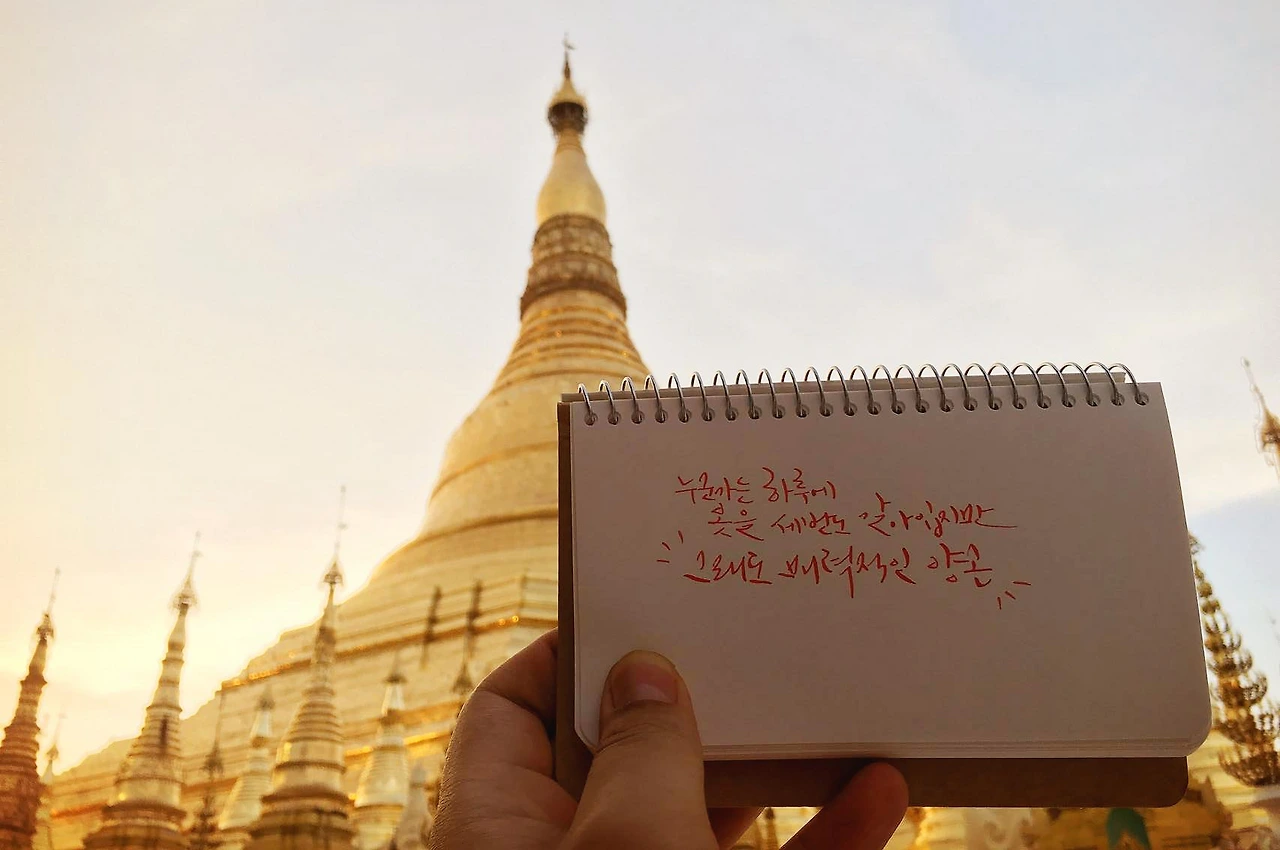 누군가는 하루에
옷을 세번도 갈아입지만
그래도 매력적인 양곤